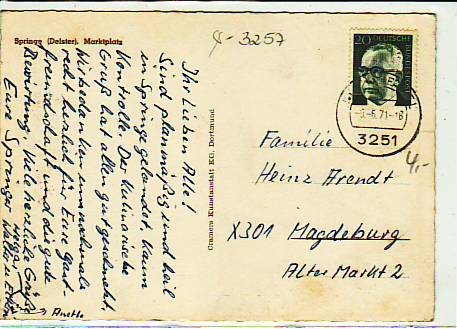 8-3257
Springe (Deister), Marktplatz
Ihr Lieben Alle!
Sind planmäßig und heil
in Springe gelandet. Kaum
Kontrolle. Der kulinarische
Gruß hat allen gut geschmeckt.
Wir bedanken uns nochmals
recht herzlich für Eure Gast-
freundschaft und die gute
Bewirtung. Viele herzliche Grüße
Eure Springer
Anette
Cramers Kunstanstalt KG. Dortmund
20 DEUTSCHE BUNDESPOST
-9.-6.71-16
3251
4,-
Familie
Heinz Arendt
X301 Magdeburg
Alter Markt 2